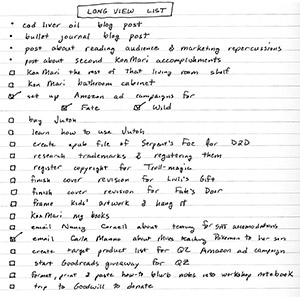 LONG VIEW LIST
cod liver oil blog post
bullet journal blog post
post about reading audience & marketing repercussions
post about second KonMari accomplishments
KonMari the rest of that living room shelf
KonMari bathroom cabinet
set up Amazon ad campaigns for
Fate Wild
buy Jutoh
learn how to use Jutoh
create epub file of Serpent's Foe for D2D
research trademarks & registering them
register copyright for Troll-magic
finish cover revision for Livli's Gift
finish cover revision for Fate's Door
frame kids' artwork & hang it
KonMari my books
email Nancy Cornell about testing for SAT accomodations
email Carla Manno about Miles teaching Pokemon to her sons
create target product list for QZ Amazon ad campaign
start Goodreads giveaway for QZ
format, print & paste how-to blurb notes into workshop notebook
trip to Goodwill to donate